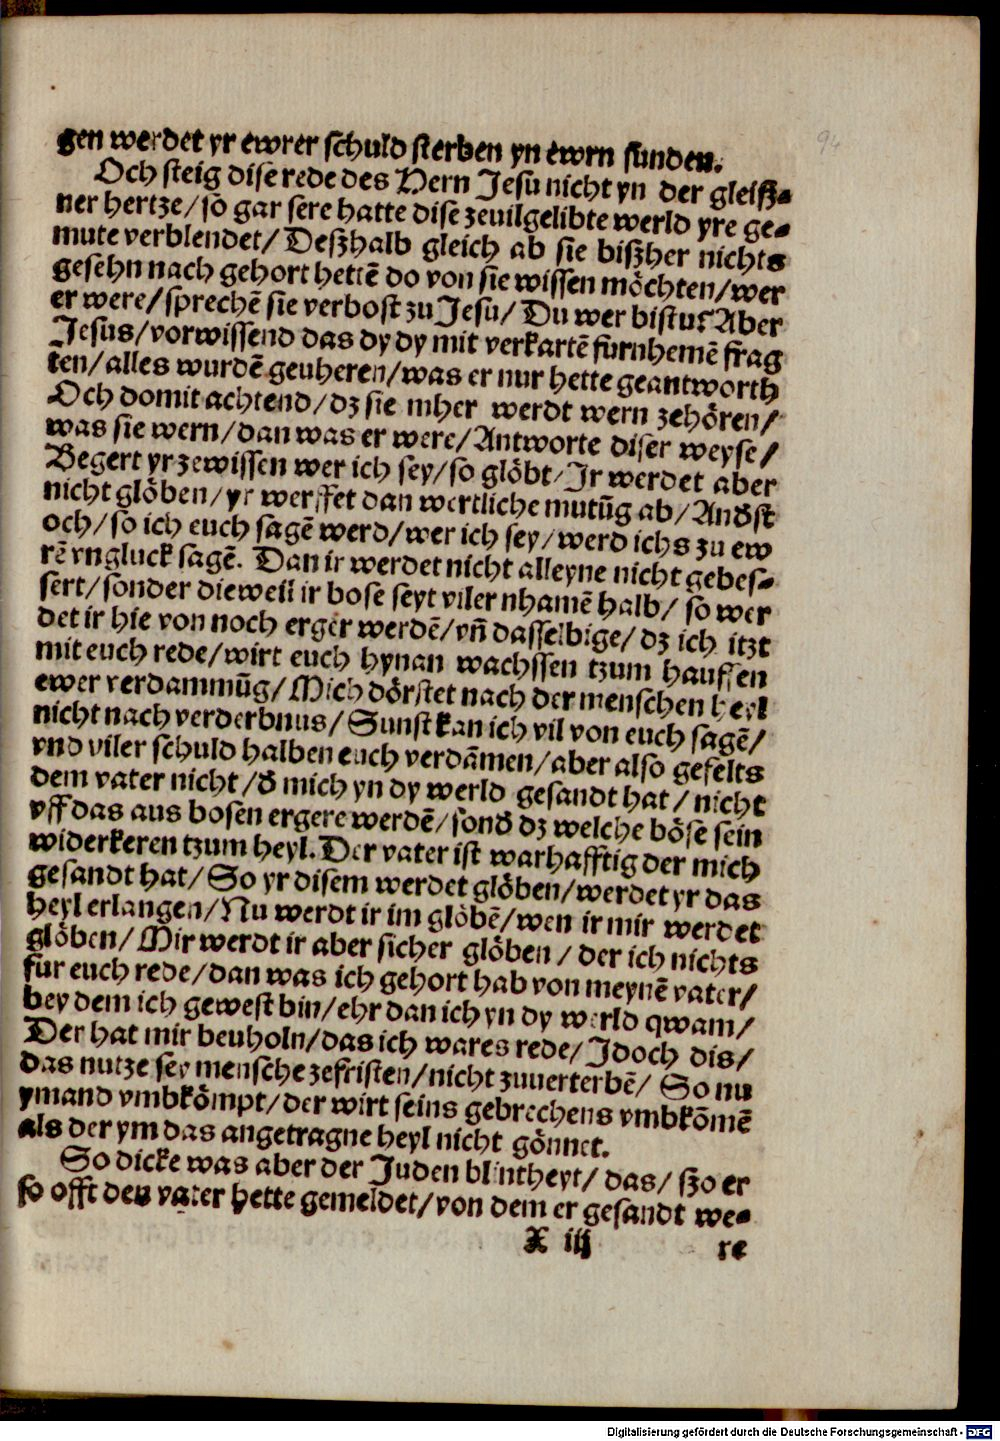 94
gen werdet yr ewrer schuld sterben yn ewrn sunden.
Och steig dise rede des Hern Jesu nicht yn der gleisz-
ner hertze/so gar sere hatte dise zeuilgelibte werld yre ge-
mute verblendet/ Deszhalb gleich ab sie biszher nichts
gesehn nach gehort hettē do von sie wissen möchten/wer
er were/sprechē sie verbost zu Jesu/ Du wer bistu? Aber
Jesus/vorwissend das dy dy mit verkartē furnhemē frag
ten/alles wurdē geuheren/was er nur hette geantworth
Och domit achtend/dz sie mher werdt wern zehören/
was sie wern/dan was er were/Antworte diser weyse/
Begert yr zewissen wer ich sey/so glöbt/Ir werdet aber
nicht glöben/yr werffet dan wertliche mutūg ab/Andst
och/so ich euch sagē werd/wer ich sey/werd ichs zu ew
rē vngluck sagē. Dan ir werdet nicht alleyne nicht gebes-
sert/sonder dieweil ir bose seyt viler nhamē halb/ so wer
det ir hie von noch erger werdē/vn̄ dasselbige/dz ich itzt
mit euch rede/wirt euch hynan wachssen tzum hauffen
ewer verdammūg/Mich dörstet nach der menschen heyl
nicht nach verderbnus/Sunst kan ich vil von euch sagē/
vnd viler schuld halben euch verdāmen/aber also gefelts
dem vater nicht/d̄ mich yn dy werld gesandt hat/nicht
vff das aus bosen ergere werdē/sond̄ dz welche böse sein
widerkeren tzum heyl. Der vater ist warhafftig der mich
gesandt hat/So yr disem werdet glöben/werdet yr das
heyl erlangen/Nu werdt ir im glöbē/wen ir mir werdet
glöben/Mir werdt ir aber sicher glöben/der ich nichts
fur euch rede/dan was ich gehort hab von meynē vater/
bey dem ich gewest bin/ehr dan ich yn dy werld qwam/
Der hat mir beuholn/das ich wares rede/Idoch dis/
das nutze sey mensche zefristen/nicht zuuerterbē/ So nu
ymand vmbkömpt/der wirt seins gebrechens vmbkōmē
als der ym das angetragne heyl nicht gönnet.
So dicke was aber der Juden blintheyt/das/szo er
so offt den vater hette gemeldet/von dem er gesandt we-
X iij
re
Digitalisierung gefördert durch die Deutsche Forschungsgemeinschaft - DFG